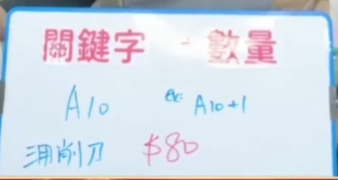 關鍵字 + 數量
A10 ex A10+1
削刀 $80